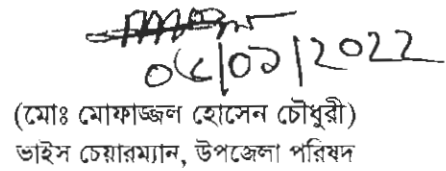 ০৫/০১/2022
(মোঃ মোফাজ্জল হোসেন চৌধুরী)
ভাইস চেয়ারম্যান, উপজেলা পরিষদ